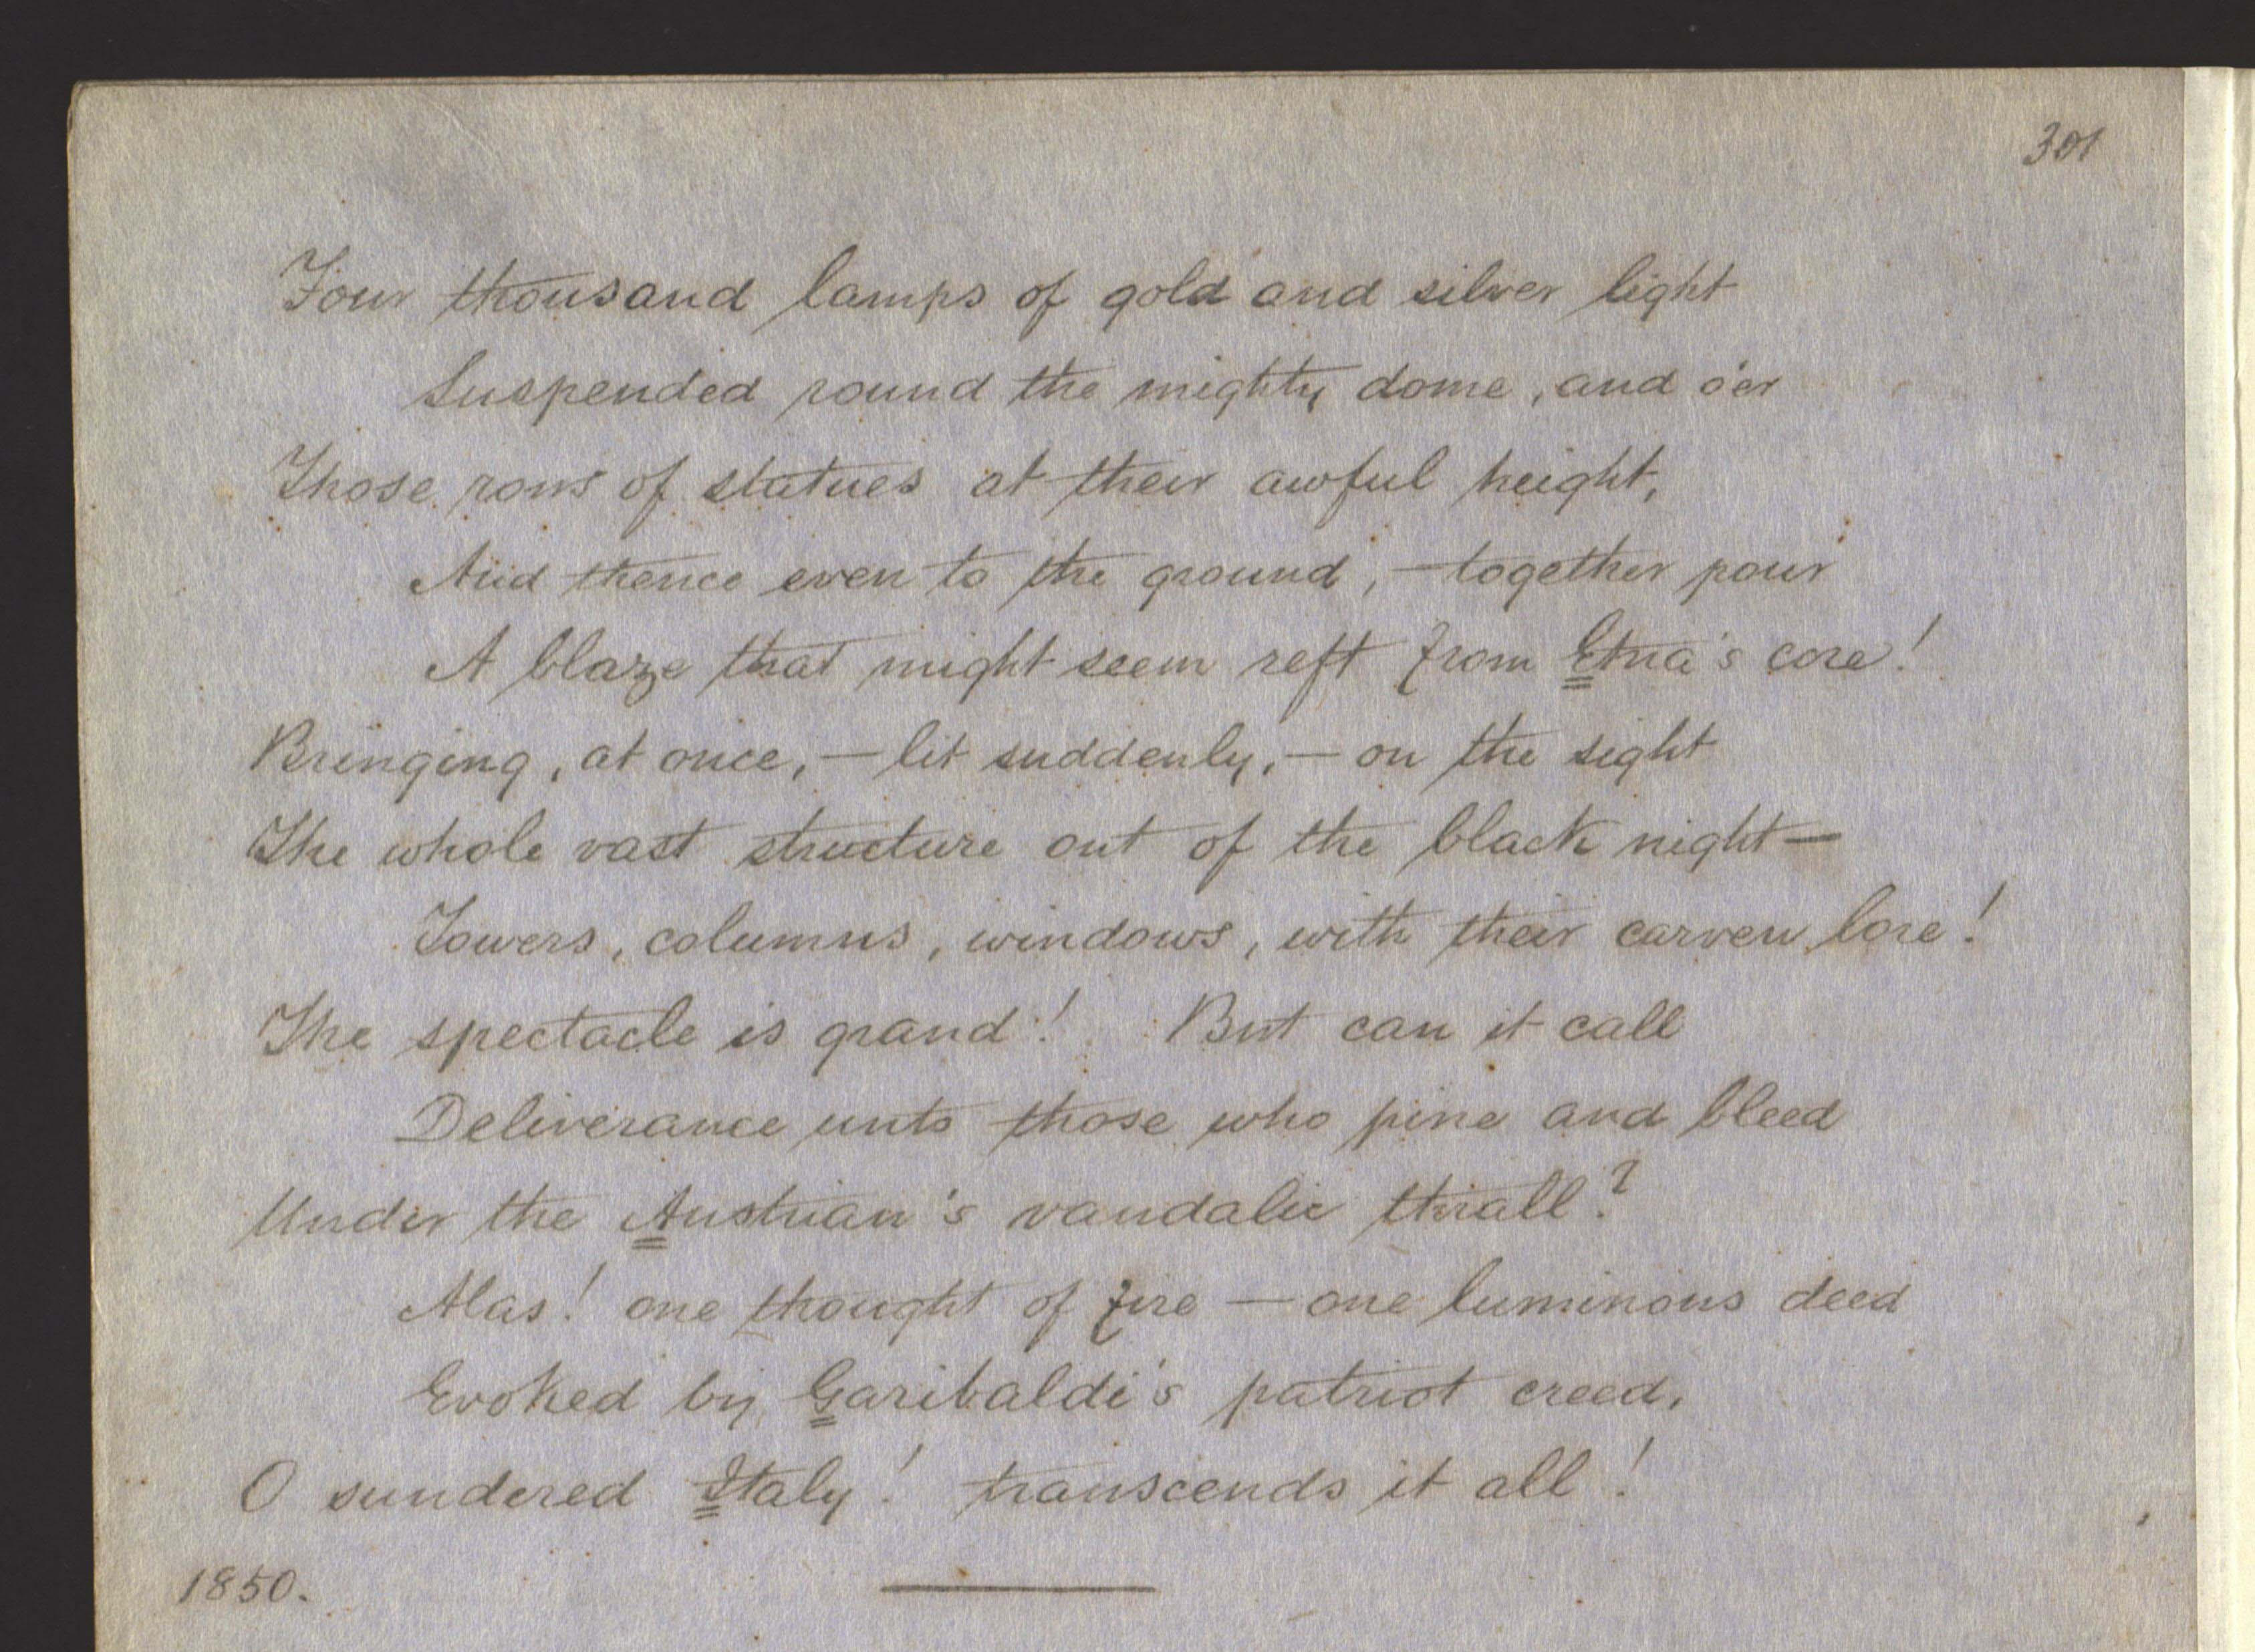 301
Four thousand lamps of gold and silver light
Suspended round the mighty dome, and o'er
Those rows of statues at their awful height,
And thence even to the ground, — together pour
A blaze that might seem reft from Etna's core!
Bringing, at once, — lit suddenly, — on the sight
The whole vast structure out of the black night —
Towers, columns, windows, with their carven lore!
The spectacle is grand! But can it call
Deliverance unto those who pine and bleed
Under the Austrian's vandalic thrall?
Alas! one thought of fire — one luminous deed
Evoked by Garibaldi's patriot creed,
O sundered Italy! transcends it all!
1850.